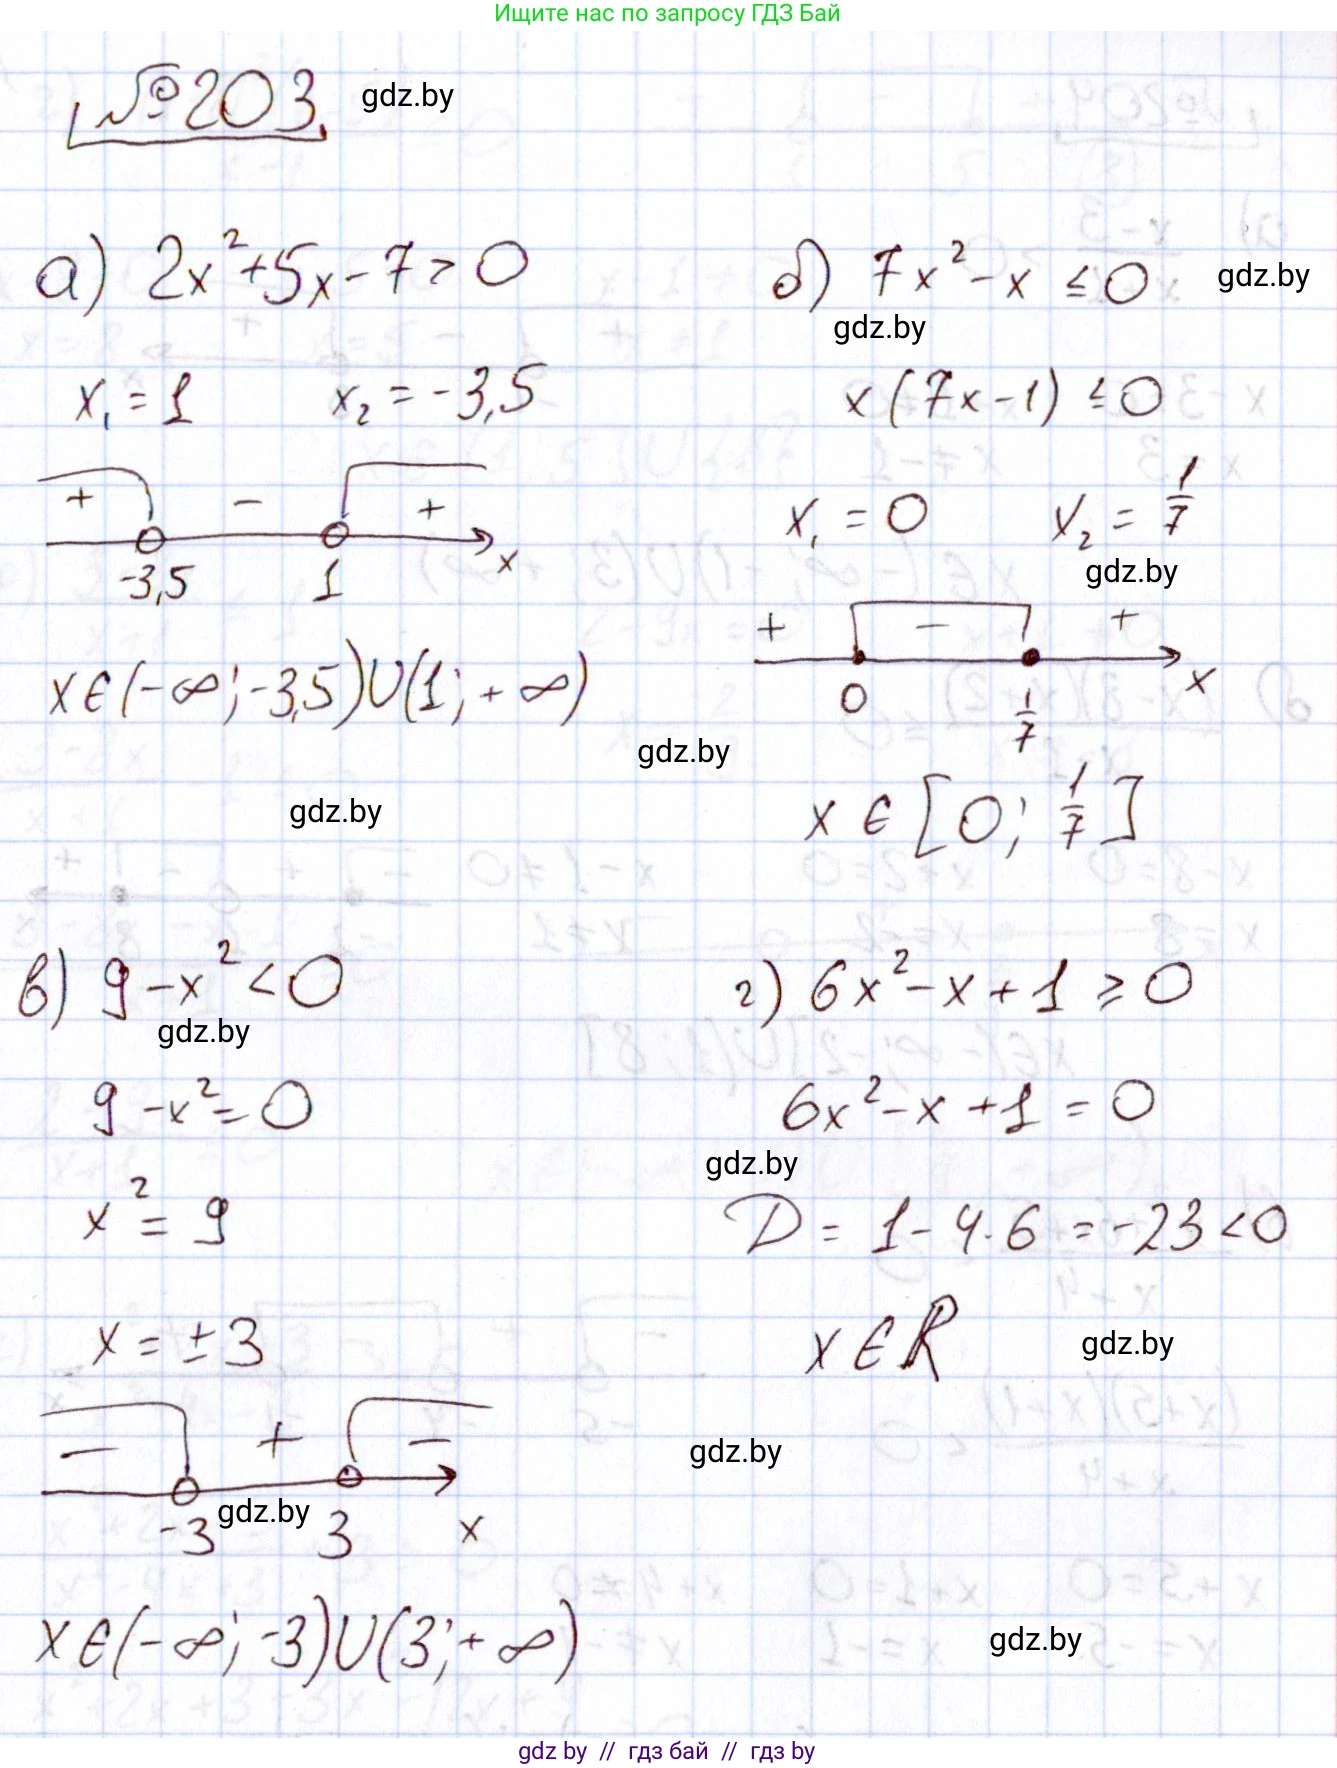 Ищите нас по запросу ГДЗ Бай
№203
gdz.by
а) 2x²+5x-7>0
x₁=1 x₂=-3,5
+ - +
-3,5 1 x
x∈(-∞;-3,5)∪(1;+∞)
gdz.by
gdz.by
б) 7x²-x≤0
gdz.by
gdz.by
x(7x-1)≤0
x₁=0 x₂=1/7
gdz.by
+ - +
0 1/7 x
x∈[0;1/7]
в) 9-x²<0
gdz.by
9-x²=0
x²=9
x=±3
- + -
-3 gdz.by 3 x
x∈(-∞;-3)∪(3;+∞)
г) 6x²-x+1≥0
6x²-x+1=0
gdz.by
D=1-4·6=-23<0
x∈R
gdz.by
gdz.by
gdz.by
gdz by // гдз бай // гдз by